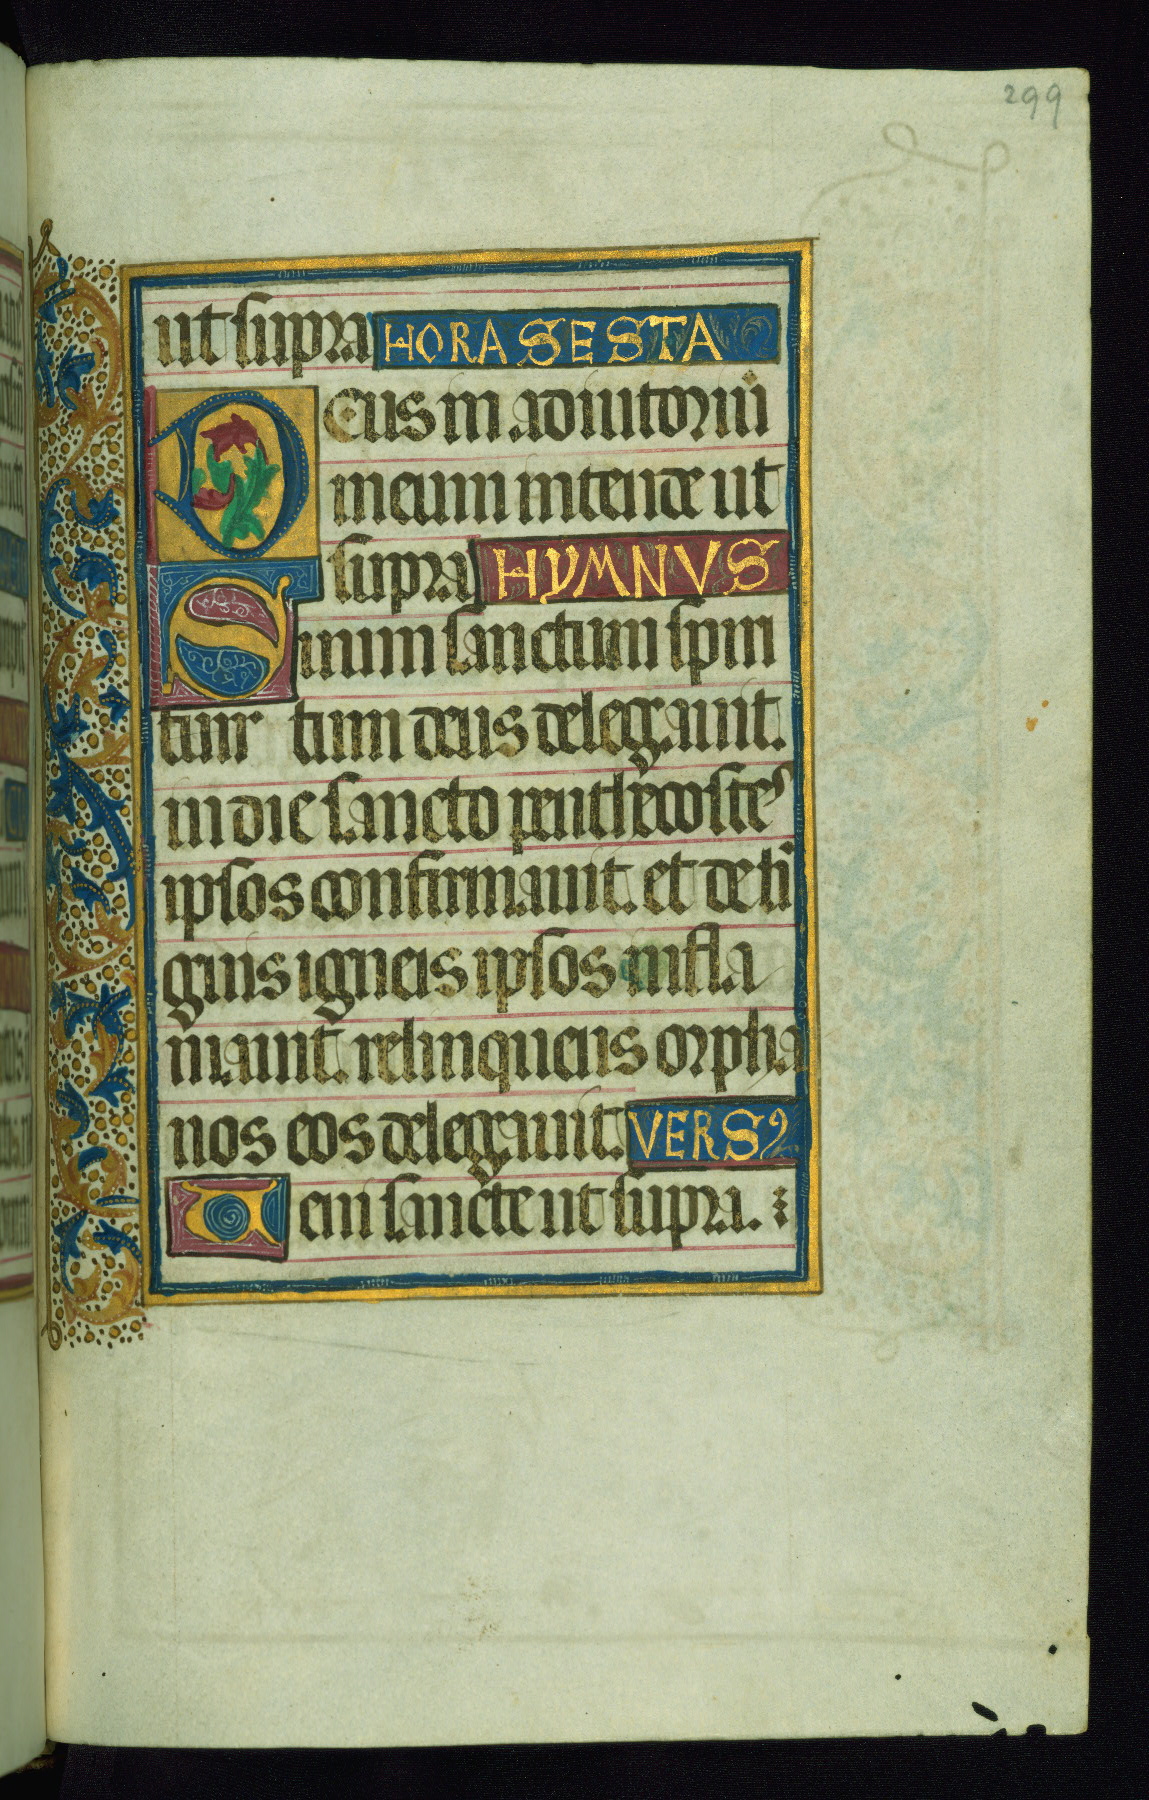 299
ut supra HORA SESTA
Deus in adiutoriū
meum intende ut
supra HYMNVS
Suum sanctum spm̄
tum deus delegauit.
in die sancto penthecostes
ipsos confirmauit. et de li
guis igneis ipsos infla
mauit. relinquens orpha
nos eos delegauit. VERSꝰ
Ueni sancte ut supra.